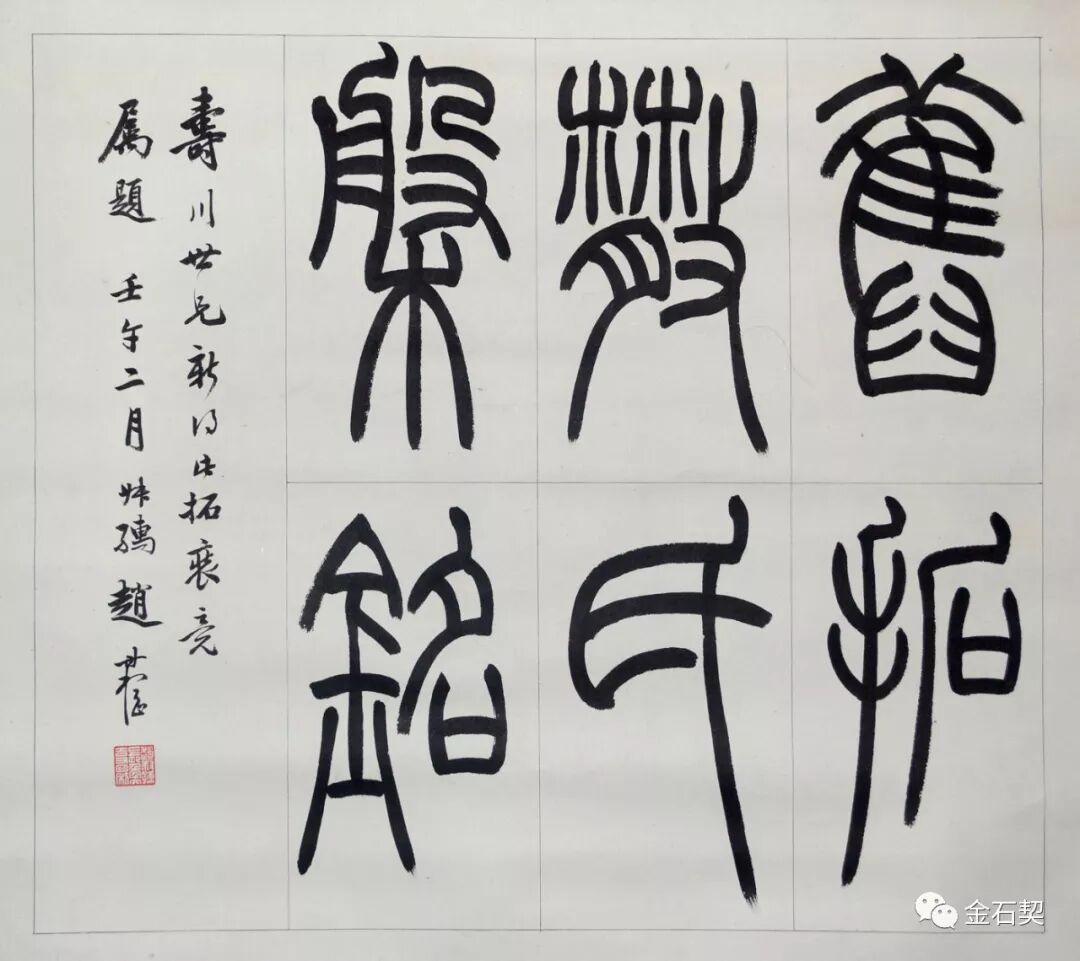 舊拓
散氏
盤銘
壽川世兄新得此拓裝竟
屬題 壬午二月 叔孺趙
金石契